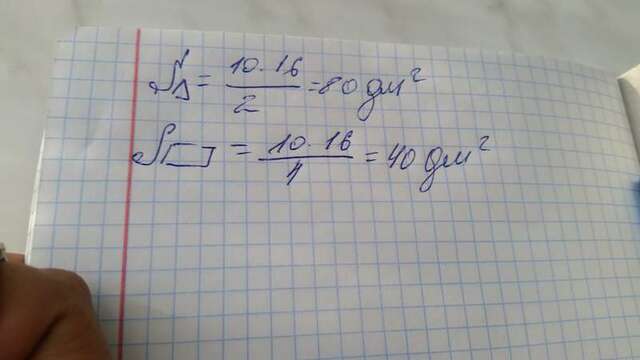 S△ = 10·16/2 = 80 дм²
S▭ = 10·16/4 = 40 дм²